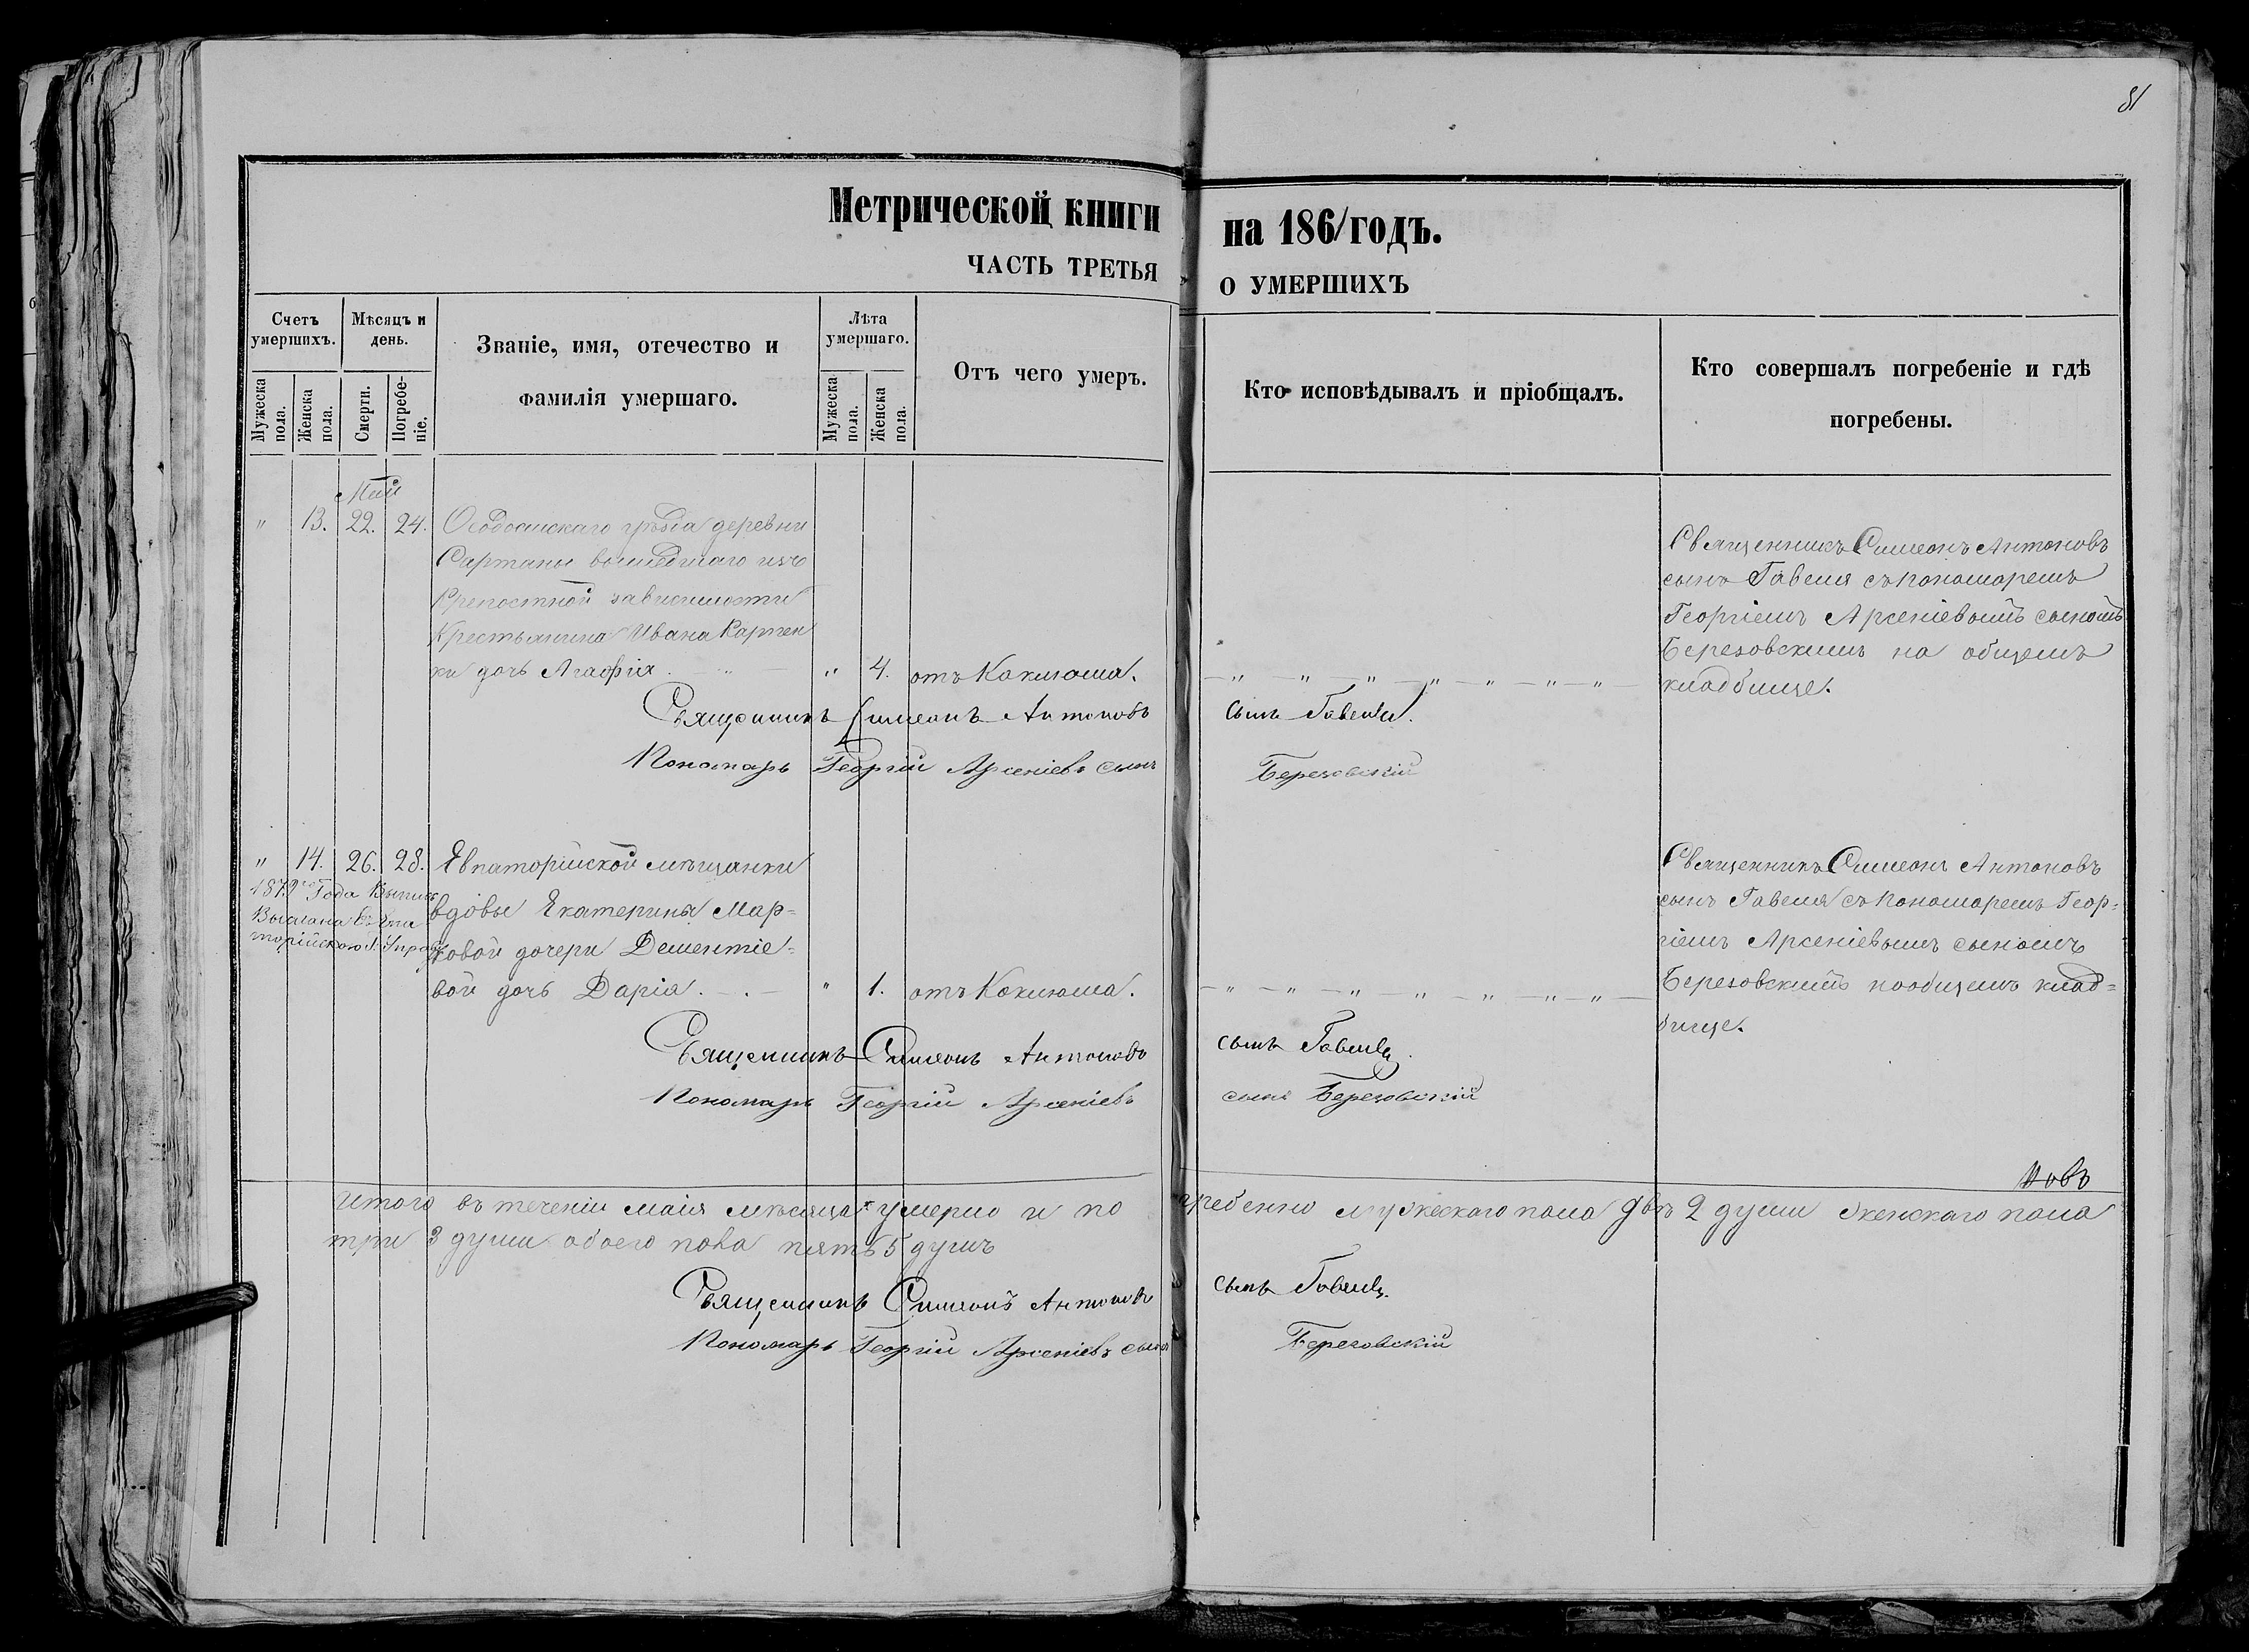 81
Метрической книги на 186/годъ.
ЧАСТЬ ТРЕТЬЯ О УМЕРШИХЪ
Счетъ умершихъ.
Мѣсяцъ и день.
Званіе, имя, отечество и фамилія умершаго.
Лѣта умершаго.
Отъ чего умеръ.
Кто исповѣдывалъ и пріобщалъ.
Кто совершалъ погребеніе и гдѣ погребены.
Мужеска пола.
Женска пола.
Смерти.
Погребе-ніе.
Мужеска пола.
Женска пола.
Май
" 13. 22. 24. Ѳеодосійскаго уѣзда деревни
Сартаны вышедшаго изъ
Крепостной зависимости
Крестьянина Ивана Карпен
ки дочь Агафія " 4. отъ Коклюша.
Священникъ Симеонъ Антоновъ
сынъ Гавеля съ пономаремъ
Георгіемъ Арсеніевымъ сыномъ
Березовскимъ на общемъ
кладбище.
Священникъ Симеонъ Антоновъ сынъ Гавеля.
Пономарь Георгій Арсеніевъ сынъ Березовскій
" 14. 26. 28. Евпаторійской мѣщанки
вдовы Екатерины Мар=
ковой дочери Дементіе=
вой дочь Дарія. " 1. отъ Коклюша.
Года
Выслана
Священникъ Симеонъ Антоновъ
сынъ Гавеля съ пономаремъ Геор=
гіемъ Арсеніевымъ сыномъ
Березовскимъ на общемъ клад=
бище.
Священникъ Симеонъ Антоновъ сынъ Гавеля
Пономарь Георгій Арсеніевъ сынъ Березовскій
Итого въ теченіи маія мѣсяца умерло и по гребенно мужескаго пола двѣ 2 души женскаго пола
три 3 души обоего пола пять 5 душъ
Священникъ Симеонъ Антоновъ сынъ Гавеля.
Пономарь Георгій Арсеніевъ сынъ Березовскій